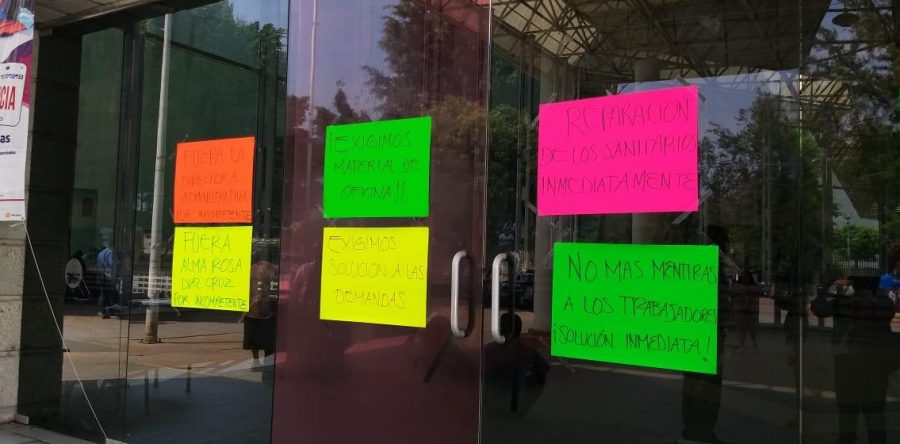 CIA
as
FUERA LA
DIRECTORA
ADMINISTRATIVA
POR INCOMPETENTE
FUERA
ALMA ROSA
DIAZ CRUZ
POR INCOMPETENTE
¡EXIGIMOS
MATERIAL DE
OFICINA!!
EXIGIMOS
SOLUCION A LAS
DEMANDAS.
REPARACION
DE LOS SANITARIOS
INMEDIATAMENTE
NO MAS MENTIRAS
A LOS TRABAJADORES
¡SOLUCIÓN INMEDIATA!